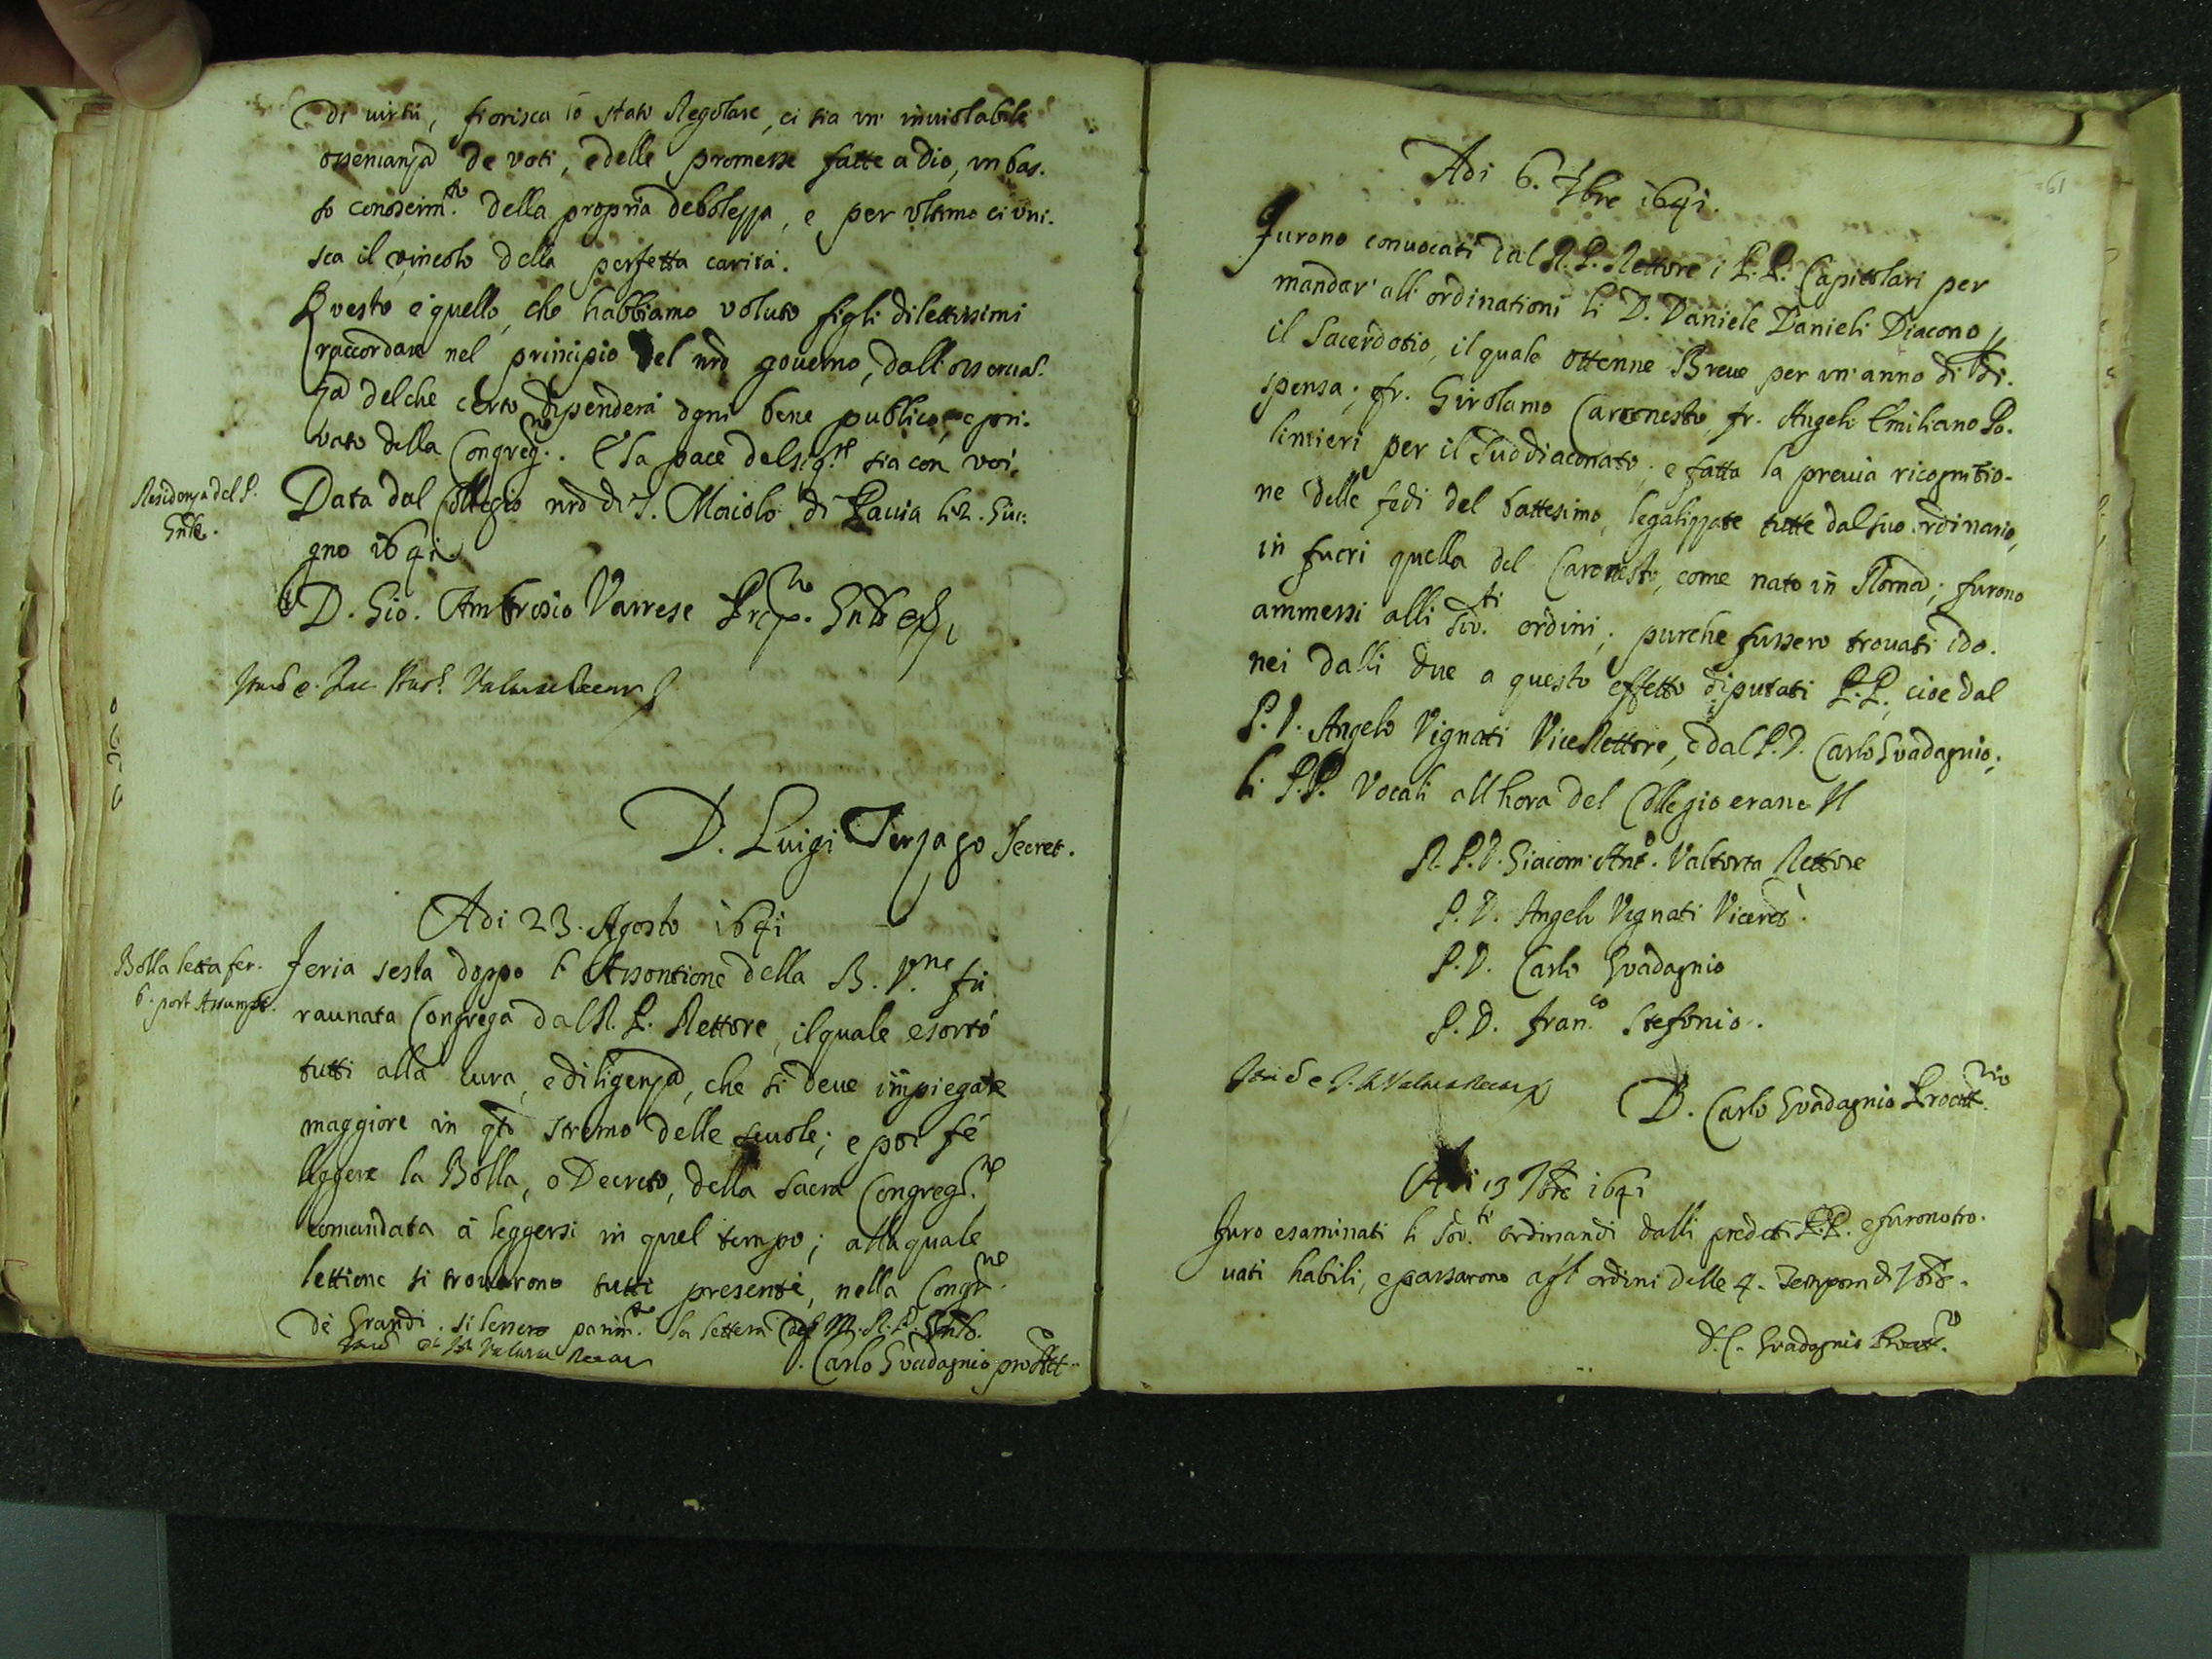 di uirtù, fiorisca lo stato Regolare, ci sia un' inuiolabile
osseruanza de voti, e delle promesse fatte a dio, un bas-
so conoscim.to della propria debolezza, e per ultimo ci uni-
sca il vincolo della perfetta carità.
Questo è quello, che habbiamo voluto figli dilettissimi
raccordare nel principio del nr̃o gouerno, dall'osseruan-
za del che certo dipenderà ogni bene publico, e pri-
vato della Congreg.ne. E la pace del Sig.re sia con voi.
Residenza del P.
Gn̄le.
Data dal Collegio nr̃o di S. Maiolo di Pauia li 2. Giu-
gno 1641
D. Gio. Ambrosio Varrese Prep.to Gn̄le
D. Luigi Terzago Secret.
Adi 23. Agosto 1641
Bolla letta fer.
6. post Assumpt.
Feria sesta doppo l'Assontione della B. V.ne fù
raunata Congrega dal R. P. Rettore, il quale esortò
tutti alla cura, e diligenza, che si deue impiegare
maggiore in q̃to stremo delle scuole; e poi fé
leggere la Bolla, o Decreto, della Sacra Congreg.ne
comandata à leggersi in quel tempo; alla quale
lettione si trouarono tutti presenti, nella Congr.ne
dè Grandi. si lessero parim.te la lettera del M. R. P. Gn̄le.
D. Carlo Guadagnio proAtt.
61
Adi 6. 7bre 1641.
Furono conuocati dal R. P. Rettore i P. P. Capitolari per
mandar' all' ordinationi li D. Daniele Danieli Diacono //
il Sacerdotio, il quale ottenne Breue per un' anno di di-
spensa; fr. Girolamo Carconesto, fr. Angelo Emiliano Po-
limieri per il Suddiaconato; e fatta la preuia ricognitio-
ne delle fedi del battesimo, legalizzate tutte dal suo ordinario,
in fuori quella del Carconesto, come nato in Roma; furono
ammessi alli sud.ti ordini; purche fussero trouati ido-
nei dalli due a questo effetto diputati P.P., cioe dal
P. D. Angelo Vignati ViceRettore, e dal P. D. Carlo Guadagnio;
li P.P. Vocali all'hora del Collegio erano Il
R. P. D. Giacom' Ant.o Valtorta Rettore
P. D. Angelo Vignati Viceret.
P. D. Carlo Guadagnio
P. D. Fran.co Stefonio.
D. Carlo Guadagnio Proatt.rio
Adi 13 7bre 1641
Furo esaminati li sud.ti ordinandi dalli predetti P.P. e furono tro-
uati habili, e passarono agl' ordini delle 4. Tempora di 7bre.
D. C. Guadagnio Proatt.o